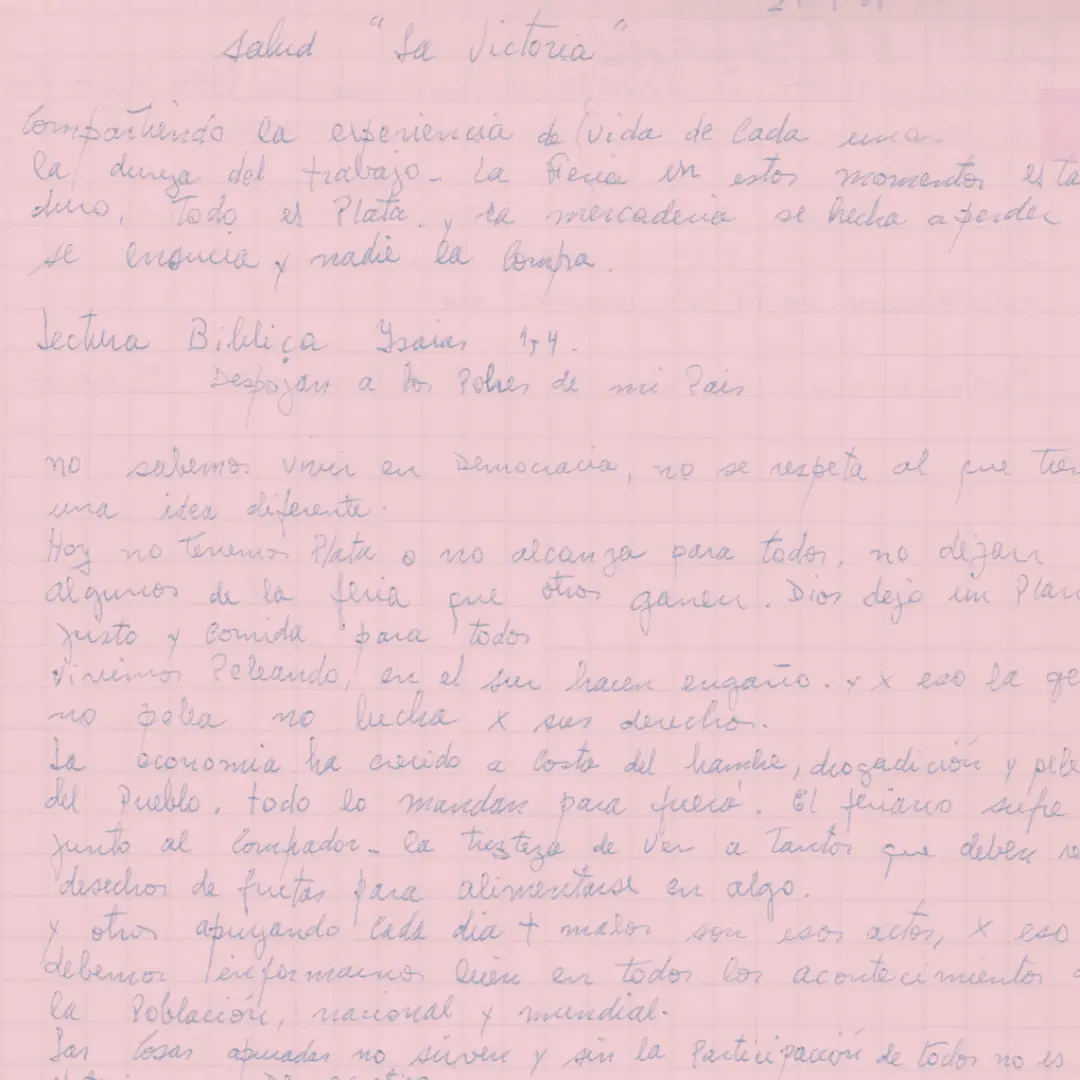 salud "La Victoria"
Compartiendo la experiencia de vida de cada una.
la dureza del trabajo - La Feria en estos momentos esta
duro, Todo es Plata. y la mercaderia se hecha a perder
se ensucia y nadie la compra.
Lectura Biblica Isaias 1,4.
Despojan a los Pobres de mi Pais
no sabemos vivir en Democracia, no se respeta al que tien
una idea diferente.
Hoy no Tenemos Plata o no alcanza para todos, no dejan
algunos de la feria que otros ganen. Dios dejó un Plan
Justo y Comida para todos
Vivimos Peleando, en el sur hacen engaño. y x eso la ge
no pelea no lucha x sus derechos.
La economia ha crecido a Costa del hambre, drogadición y
del Pueblo. todo lo mandan para fuera. El feriano sufre
junto al Comprador - la tristeza de ver a Tantos que deben re
desechos de frutas para alimentarse en algo.
y otros apuyando Cada dia + malos son esos actos, x eso
debemos informarnos bien en todos los acontecimientos
la Población, nacional y mundial.
Las Cosas apuradas no sirven y sin la Participación de todos no es